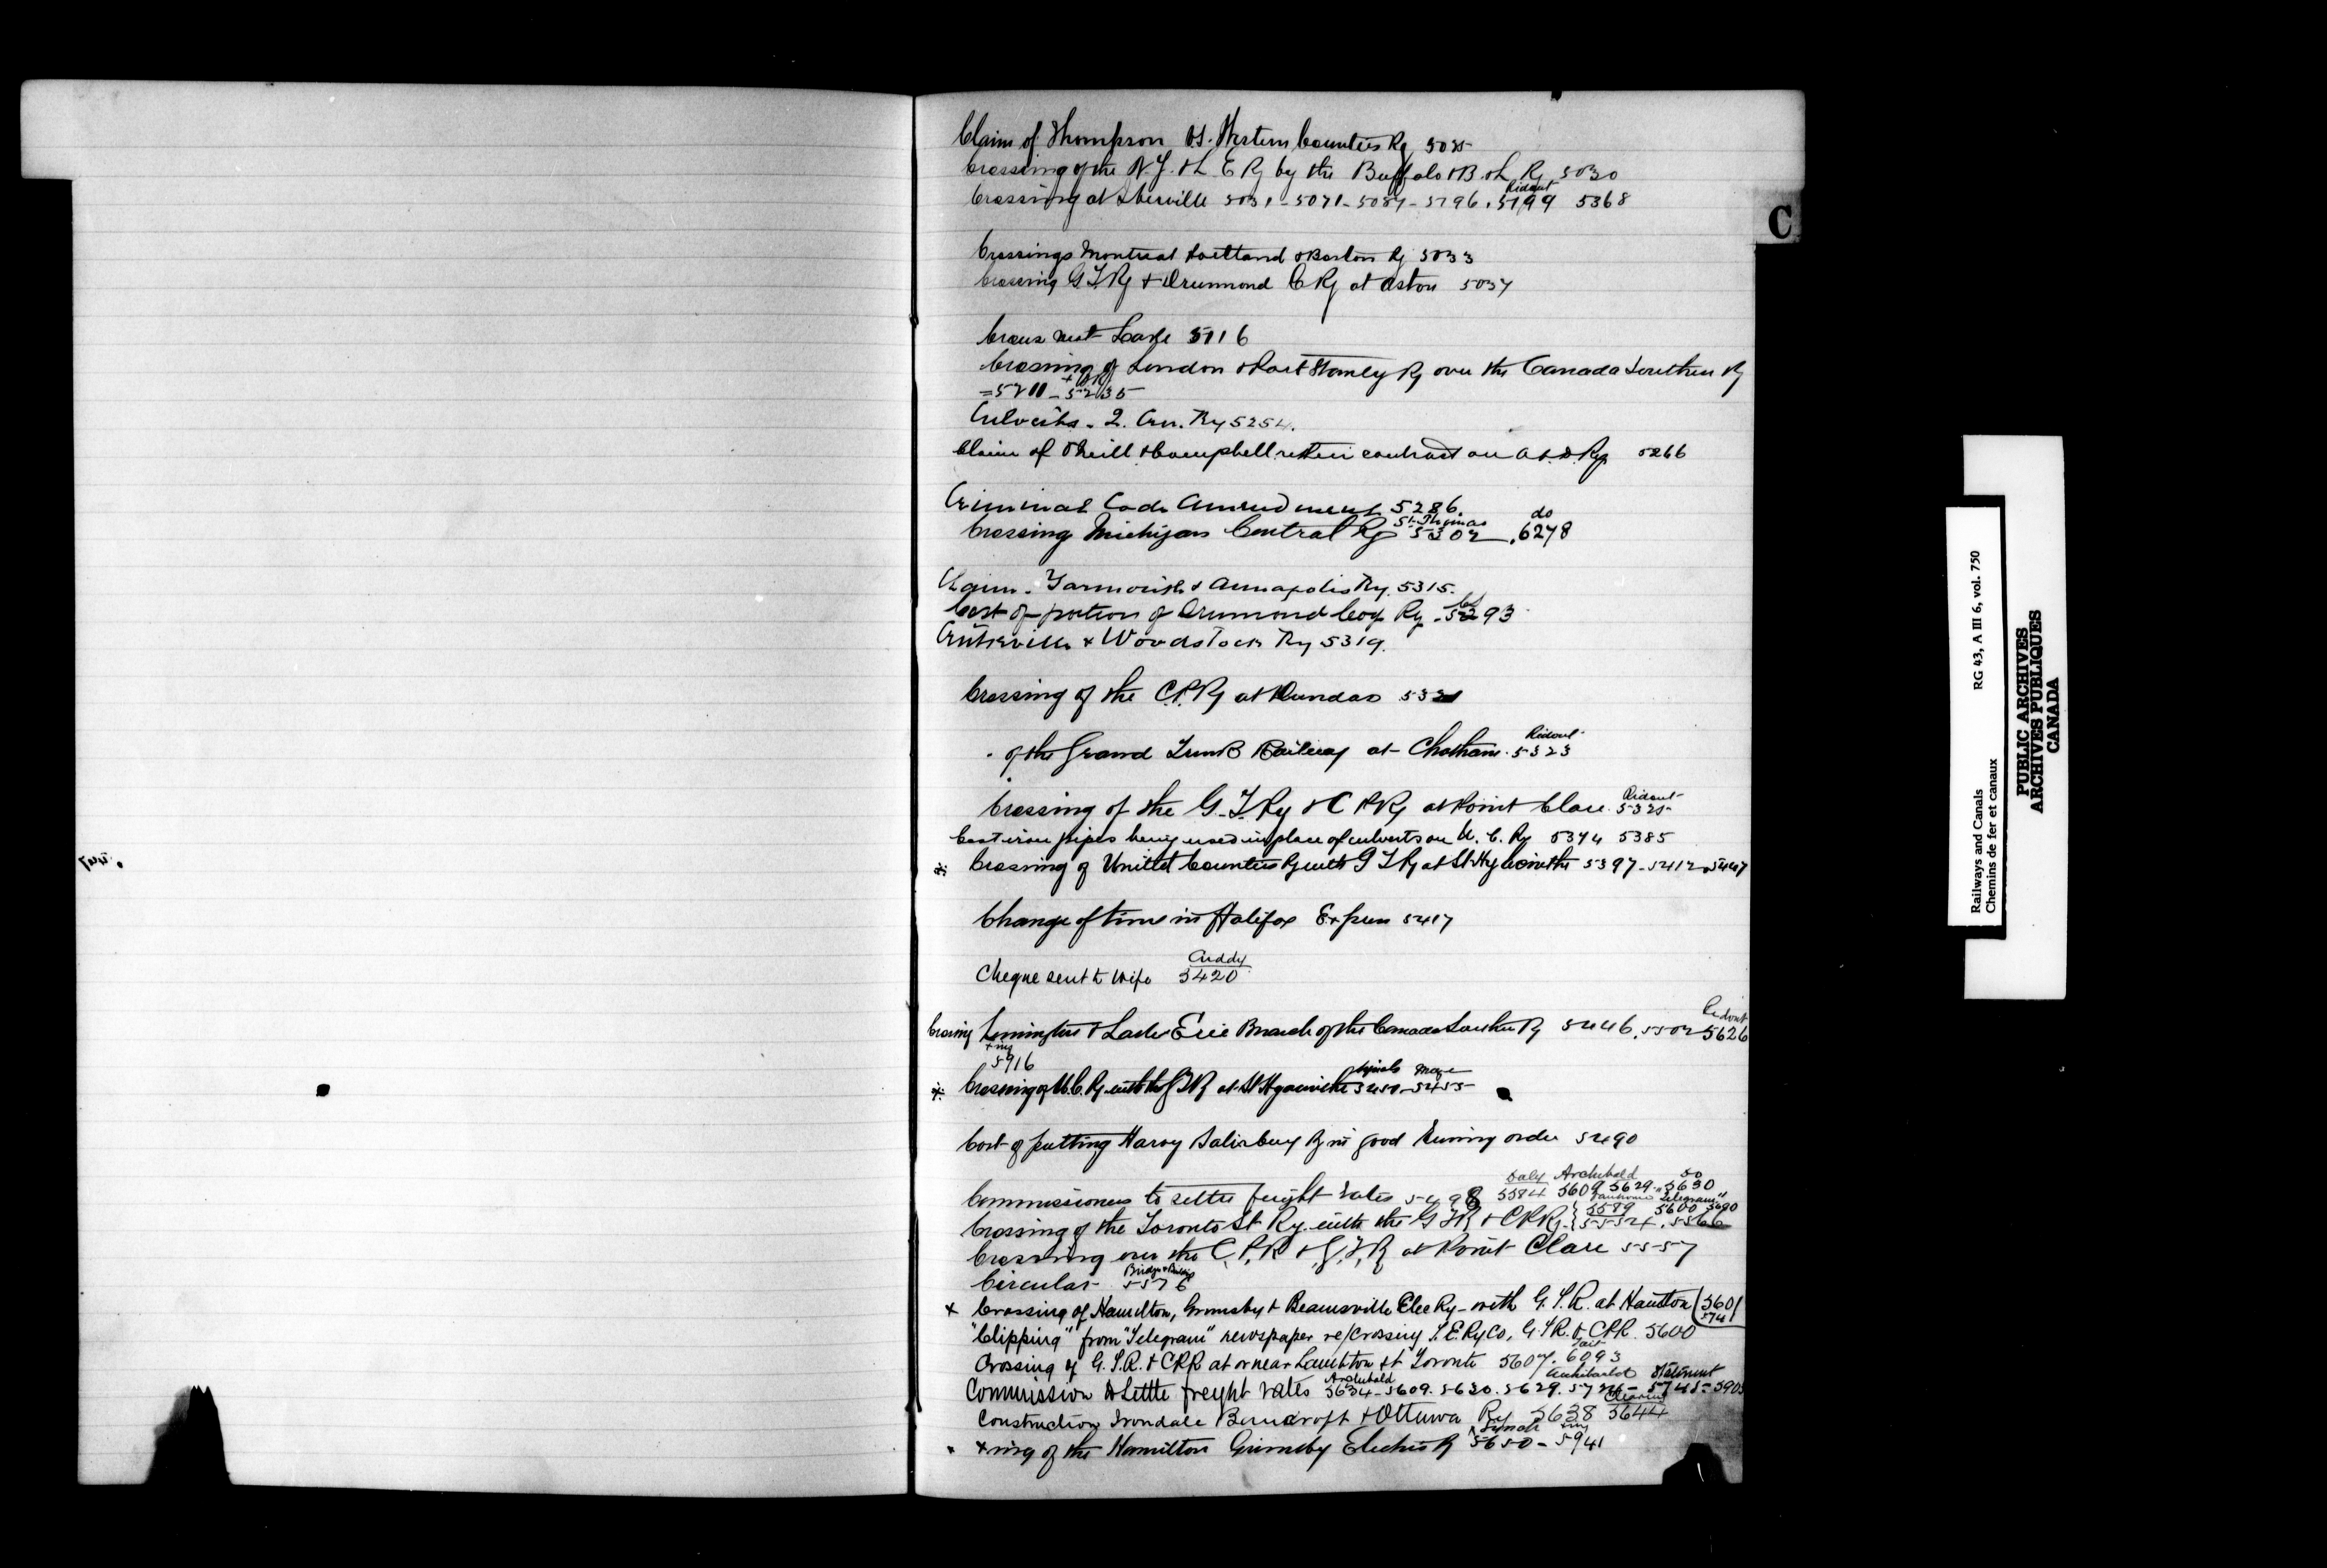 Claim of Thompson vs. Western Counties Ry 5025
Crossing of the N.Y. & L. E Ry by the Buffalo & B & L Ry 5030
Ridout
Crossing at Iberville 5031 - 5071 - 5087 - 5196 . 5199 5368
C
Crossings Montreal Portland & Boston Ry 5033
Crossing G T Ry & Drummond C Ry at Aston 5037
Crows nest Lake 5116
Crossing of London & Port Stanley Ry over the Canada Southern Ry
= 5211 - 5235
Culverts - 2. Can. Ry 5254.
Claim of O'Neill & Campbell re their contract on Ry 5266
Criminal Code Amendment 5286.
St. Thomas do
Crossing Michigan Central Ry 5302 , 6278
Claim - Yarmouth & Annapolis Ry. 5315.
Cost of portion of Drummond Coy Ry - 5293
& Woodstock Ry 5319.
Crossing of the C.P. Ry at Dundas 5321
Ridout
" of the Grand Trunk Railway at Chatham . 5323
Ridout
Crossing of the G. T. Ry & C P Ry at Point Clare . 5325
Cast iron pipes being used in place of culverts on U. C. Ry 5374 5385
Crossing of United Counties Ry with G T Ry at St Hyacinthe 5397 - 5412 - 5447
Change of time in Halifax Express 5417
Cuddy
Cheque sent to wife 5420
Ridout
Crossing Leamington & Lake Erie Branch of the Canada Southern Ry 5446 . 5502 5626
xing
5916
Crossing of U. C. Ry with the G T R at St Hyacinthe 5450 - 5455
Cost of putting Harvey Salisbury Ry in good running order 5490
Daly Archibald do
Commissioners to settle freight rates 5498 5584 5609 5629 - 5630
"Telegram"
Crossing of the Toronto St Ry. with the G T R & C P R - 5589 5600 5690
5552 4 . 5566
Crossing over the C. P. R & G. T. R at Point Clare 5557
Circular 5576
x Crossing of Hamilton, Grimsby & Beamsville Elec Ry - with G. T. R. at Hamilton (5601
5741
"Clipping" from "Telegram" newspaper re/Crossing T. E. Ry Co, G. T R. & C P R. 5600
Tait
Crossing of G. T. R. & C P R at or near Lambton & Toronto 5607. 6093
Archibald Archibald Statement
Commission to Settle freight rates 5634 - 5609. 5630. 5629. 5726 - 5745 - 5905
Construction Irondale Bancroft & Ottawa Ry 5638 5644
xing
xing of the Hamilton Grimsby Electric Ry 5650 - 5941
Railways and Canals RG 43, A III 6, vol. 750
Chemins de fer et canaux
PUBLIC ARCHIVES
ARCHIVES PUBLIQUES
CANADA